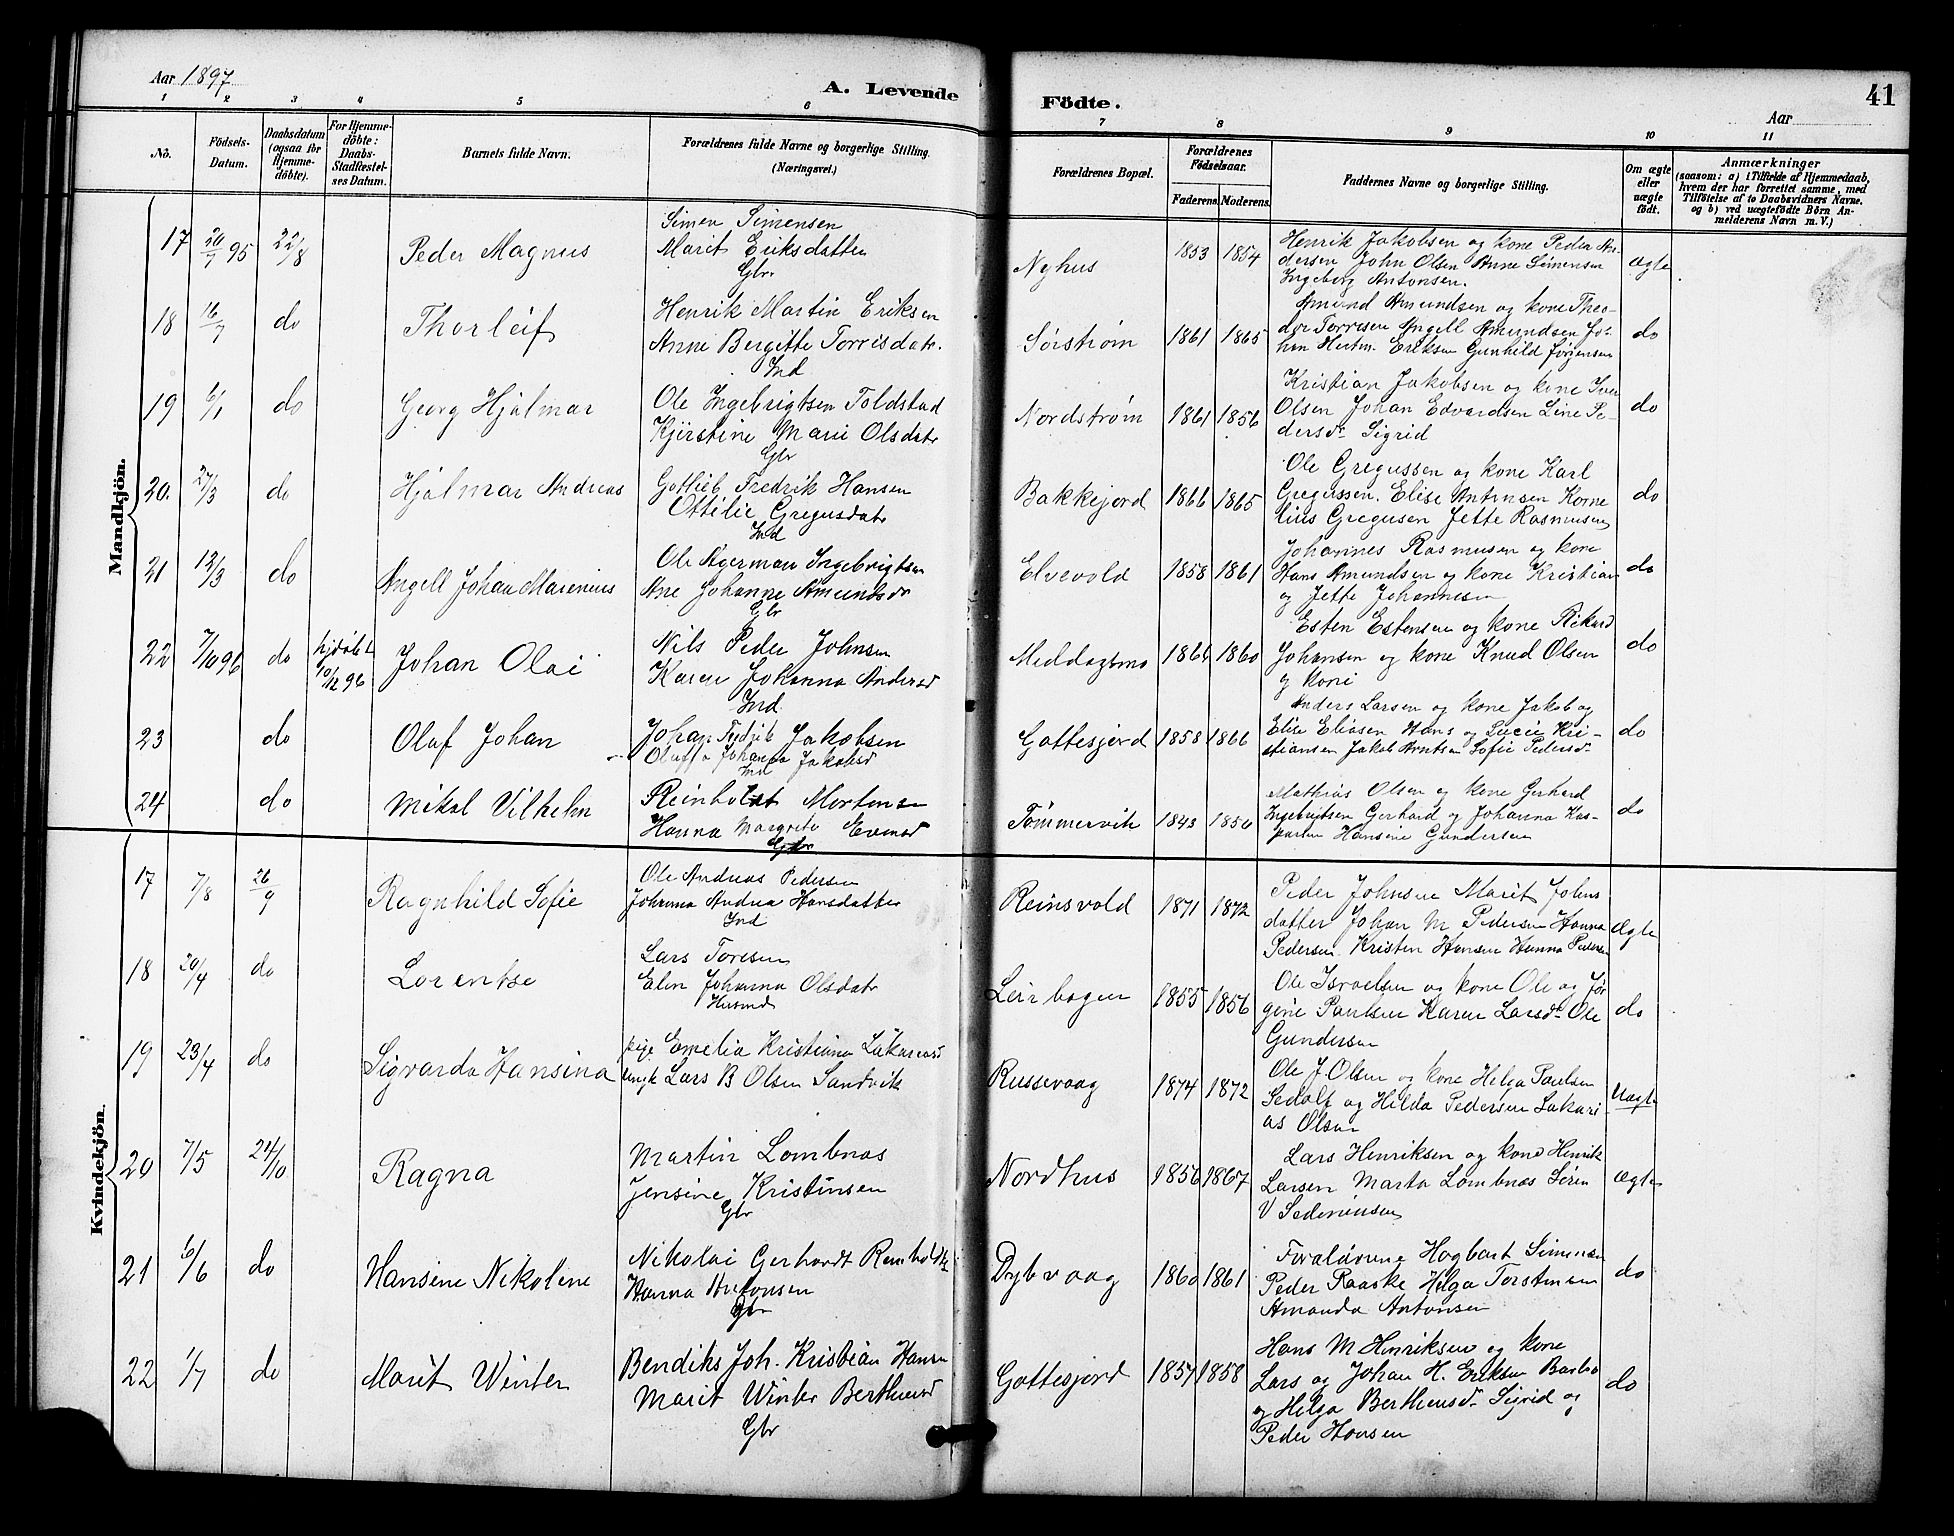 Aar 1897
A. Levende
Födte.
Aar
41
1 2 3 4 5 6 7 8 9 10 11
No.
Födsels-Datum.
Daabsdatum (ogsaa for Hjemme-döbte).
For Hjemme-döbte: Daabs-Stadfestel-ses Datum.
Barnets fulde Navn.
Forældrenes fulde Navne og borgerlige Stilling. (Næringsvei.)
Forældrenes Bopæl.
Forældrenes Födselsaar.
Faderens. Moderens.
Faddernes Navne og borgerlige Stilling.
Om ægte eller uægte födt.
Anmærkninger
(saasom: a) i Tilfælde af Hjemmedaab, hvem der har forrettet samme, med Tilföielse af to Daabsvidners Navne, og b) ved uægtefödte Börn Anmelderens Navn m. V.)
Mandkjön.
17 20/7 95 22/8 Peder Magnus
Simon Simensen
Marit Eriksdatter
Gbr
Nyhus 1853 1854
Henrik Jakobsen og kone Peder An-
dersen John Olsen Anne Simensen
Ingeborg Antonsen.
Ægte
18 16/7 do Thorleif
Henrik Martin Eriksen
Anne Bergitte Torrisdatr.
Ind
Sørstrøm 1861 1865
Amund Amundsen og kone Theo-
dor Torresen Angell Amundsen Jo-
han Hartm. Eriksen Gunhild Jørgensen
do
19 6/1 do Georg Hjalmar
Ole Ingebrigtsen Toldstad
Kjirstine Marie Olsdatr
Gbr
Nordstrøm 1861 1856
Kristian Jakobsen og kone Iver
Olsen Johan Edvardsen Line Pe-
dersdr Sigrid
do
20. 27/3 do Hjalmar Andreas
Gottlieb Fredrik Hansen
Ottilie Gregusdatr
Ind
Bakkejord 1866 1865
Ole Gregussen og kone Karl
Gregussen. Elise Antonsen Korne
lius Gregusen Jette Rasmusen
do
21 12/3 do Angell Johan Marenius
Ole Agerman Ingebrigtsen
Ane Johanne Amundsdr
Gbr
Elvevold 1858 1861
Johannes Rasmusen og kone
Hans Amundsen og kone Kristian
og Jette Johannesen
do
22 7/10 96 do hjdøbt 10/12 96 Johan Olai
Nils Peder Johnsen
Karen Johanna Andersd
Ind
Middagtmo 1864 1860
Esten Estensen og kone Rikard
Johansen og kone Knud Olsen
og kone
do
23 do Olaf Johan
Johan Fredrik Jakobsen
Oluffa Johanna Jakobsd
Ind
Gottesjord 1858 1866
Anders Larsen og kone Jakob og
Elise Eliasen Hans og Lucie Kri-
stiansen Jakob Arntsen Sofie Pedersdr
do
24 do Mikal Vilhelm
Reinholdt Mortensen
Hanna Margrete Evensd
Gbr
Tømmervik 1843 1850
Mathias Olsen og kone Gerhard
Ingebrigtsen Gerhard og Johanna Kas-
parsen Hansine Gundersen
do
Kvindekjön.
17 7/8 26/9 Ragnhild Sofie
Ole Andreas Pedersen
Johanna Andrea Hansdatter
Ind
Reinsvold 1871 1872
Peder Johnsen Marit Johns
datter Johan M Pedersen Hanna
Pedersen Kristen Hansen Hanna Pedersen
Ægte
18 20/4 do Lorentse
Lars Toresen
Elen Johanna Olsdatr
Husmd
Leirbogen 1855 1856
Ole Israelsen og kone Ole og Jør
gine Paulsen Karen Larsdr Ole
Gundersen
do
19 23/4 do Sigvarda Hansina
pige Emelia Kristiana Lukareasd
ungk Lars B Olsen Sandvik
Russevaag 1874 1872
Ole J. Olsen og kone Helga Paulsen
Sedolf og Hilda Pedersen Sakari-
as Olsen
Uægte
20 7/5 24/10 Ragna
Martin Lombnæs
Jensine Kristinsen
Gbr
Nordhus 1856 1867
Lars Henriksen og kone Henrik
Larsen Marta Lombnæs Søren
V Sedeniusen
Ægte
21 6/6 do Hansine Nikoline
Nikolai Gerhardt Reinholdtz
Hanna Antonsen
Gbr
Dybvaag 1860 1861
Forældrene Hagbart Simensen
Peder Raaske Helga Torstensen
Amanda Antonsen
do
22 1/7 do Marit Winter
Bendiks Joh. Kristian Hansen
Marit Winter Bertheusd
Gbr
Gottesjord 1857 1858
Hans M Henriksen og kone
Lars og Johan H. Eriksen Barbo
og Helga Bertheusdr Sigrid og
Peder Hansen
do